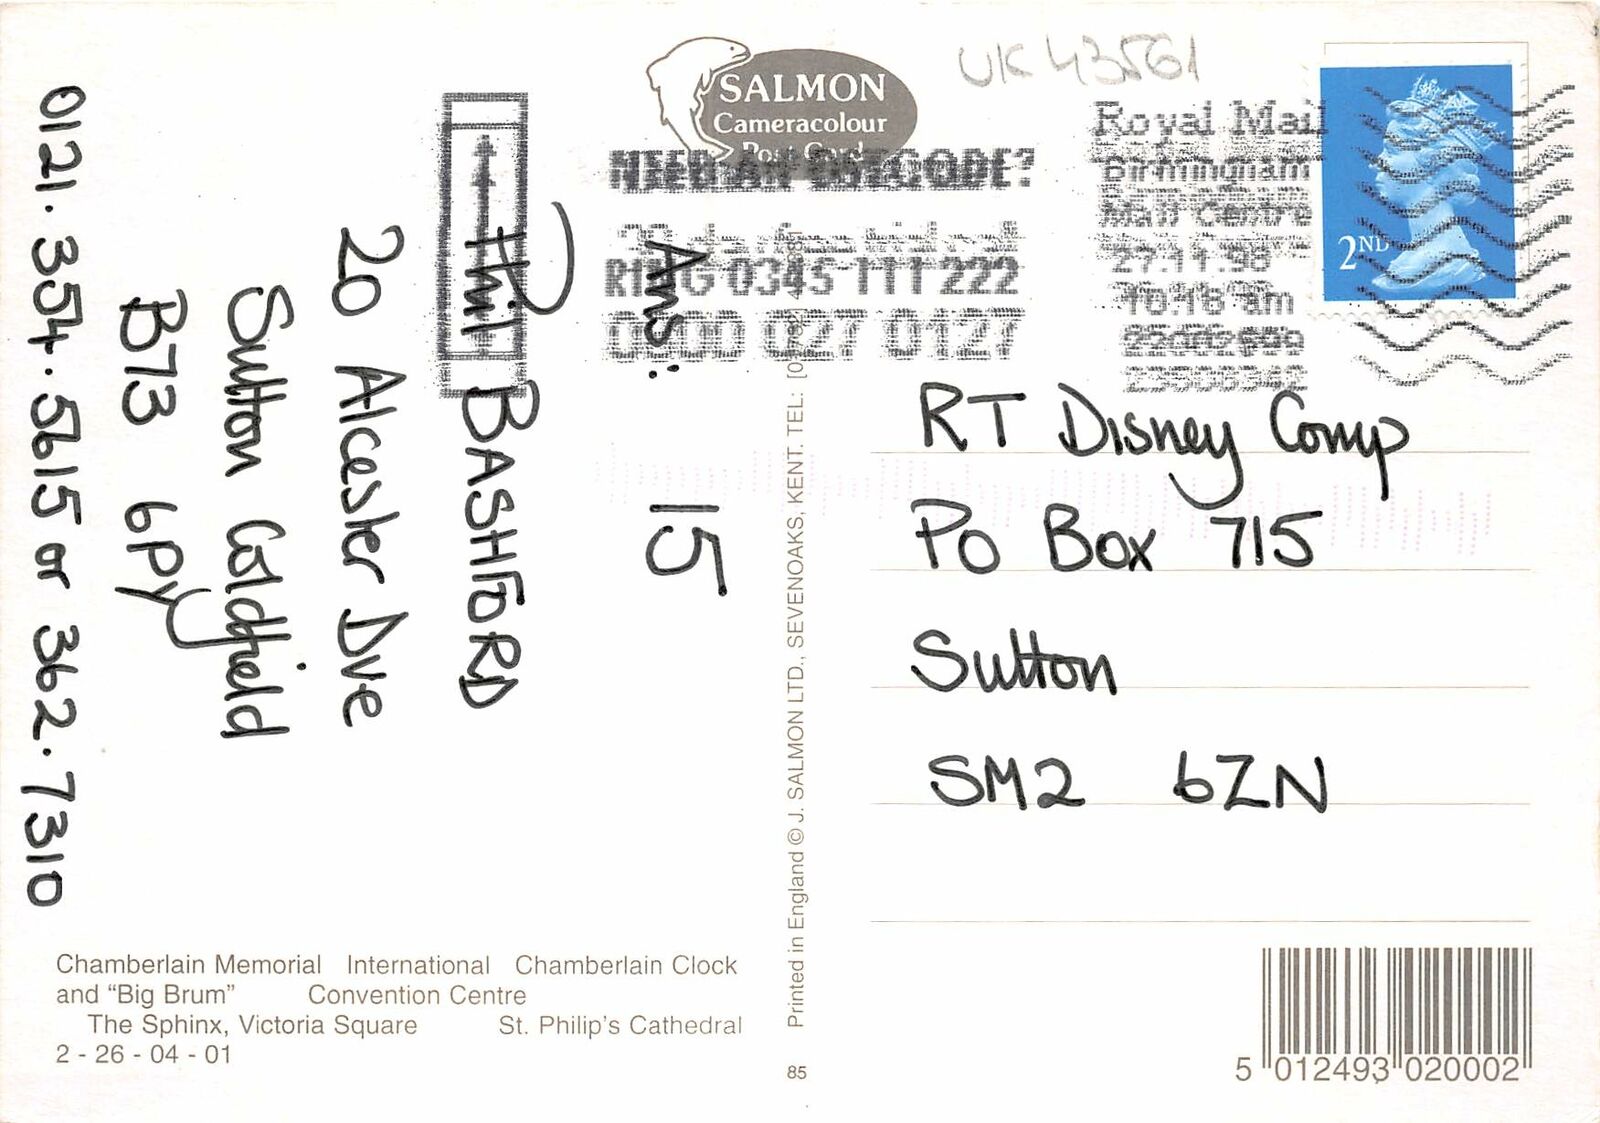 SALMON
Cameracolour
Post Card
UK 43561
NEED A POSTCODE?
RING 0345 111 222
0800 027 0127
Royal Mail
Birmingham
Mail Centre
27.11.98
10.18 am
2ND
Ans: 15
Phil BASHFORD
20 Alcester Dve
Sutton Coldfield
B73 6PY
0121.354.5615 or 362.7310
RT Disney Comp
PO Box 715
Sutton
SM2 6ZN
Printed in England © J. SALMON LTD., SEVENOAKS, KENT. TEL:
Chamberlain Memorial International Chamberlain Clock
and “Big Brum” Convention Centre
The Sphinx, Victoria Square St. Philip's Cathedral
2 - 26 - 04 - 01
85
5 012493 020002